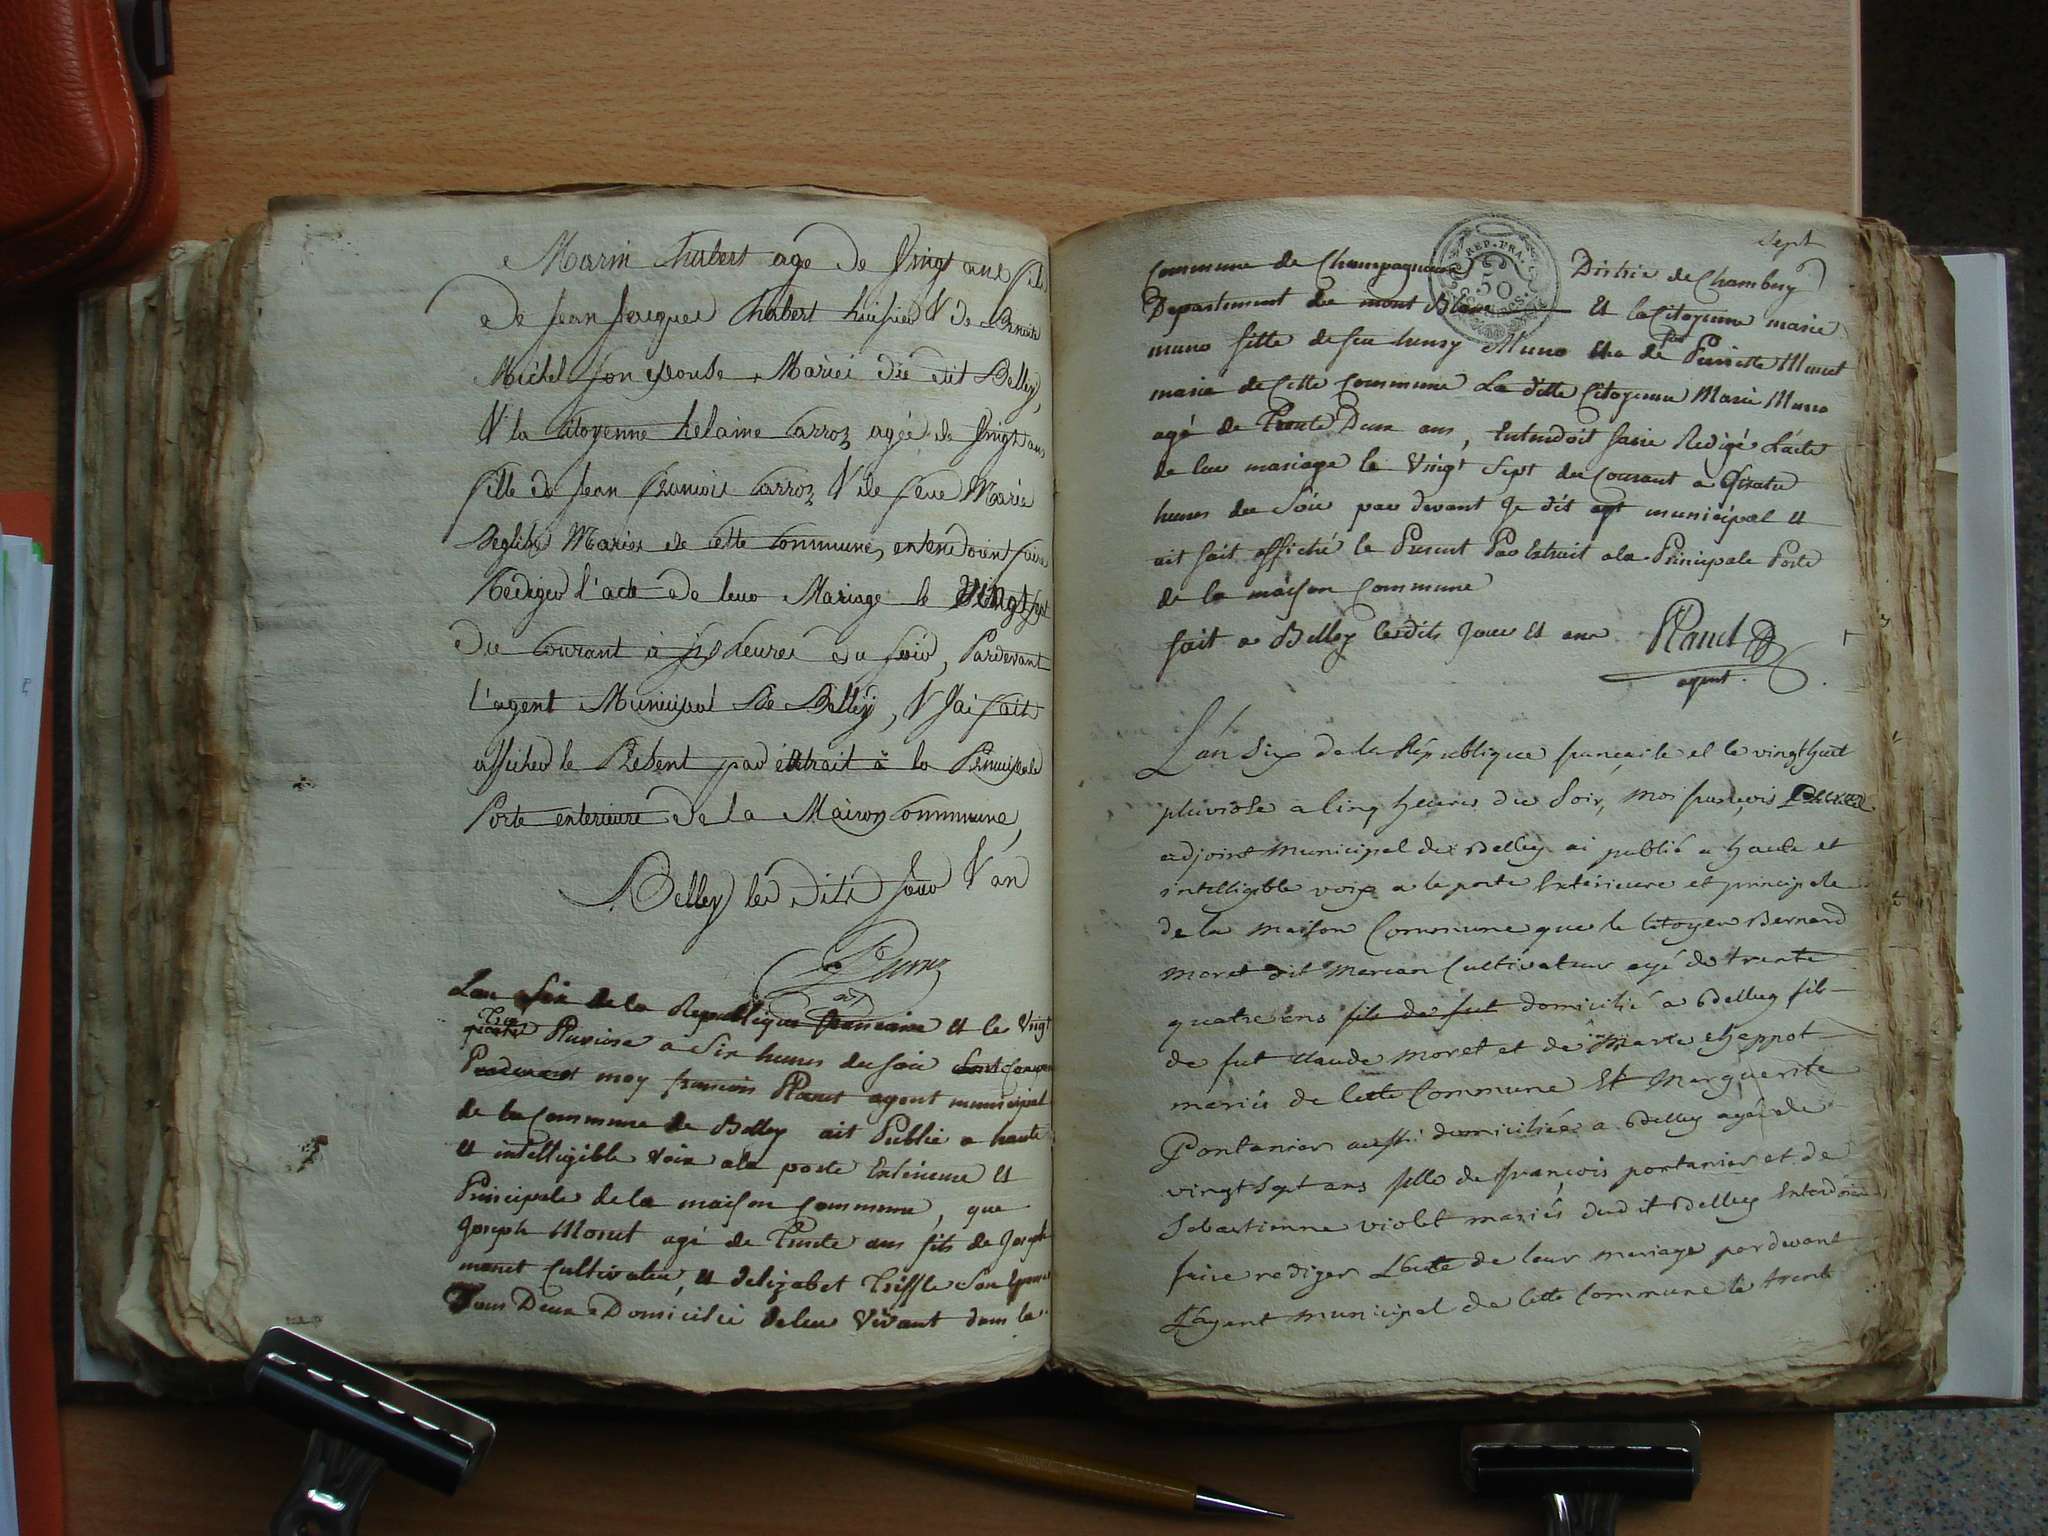 Marin Chabert age de vingt ans fils
de Jean Jacques Chabert huissier & de Benoite
Michel son epouse, Mariés du dit Belley,
& la Citoyenne helaine Carroz agée de vingt ans
fille de Jean francois Carroz & de feue Marie
Mariés de cette Commune, entendoient faire
Rediger l'acte de leur Mariage le vingt sept
du Courant à six heures du soir, Pardevant
l'agent Municipal De Belley, & J'ai fait
afficher le Présent par éxtrait à la Principale
Porte exterieure de la Maison Commune,
Belley les dits Jour & an
Lan Six de la Republique francaise et le Vingt
Trois
Pluviose a Six heures du soir
moy francois agent municipal
de la Commune de Belley ait Publié a haute
et intelligible voix a la porte Exterieure et
Principale de la maison Commune, que
Joseph Monet agé de Trente ans fils de Joseph
monet Cultivateur, et delizabet Son Epouse
Tous Deux Domicilié de leur Vivant dans la
sept
REP. FRA.
50
Commune de Champagneux District de Chambery
Departement du mont Blanc Et la Citoyenne marie
muno fille de feu henry Muno Et de feu Pierrette Muret
marié de Cette Commune La ditte Citoyenne Marie Muno
agé de Trente Deux ans, Entendoit faire Redigé L'acte
de leur mariage le Vingt Sept du Courant a quatre
heures du Soir par devant Je dit agt municipal et
ait fait affiché le Present Par Extrait a la Principale Porte
de la maison Commune
fait a Belley lesdits Jour et an
agent.
L'an Six de la République française et le vingt huit
pluviose a Cinq heures du Soir, moi françois
adjoint Municipal de Belley ai publié a haute et
intelligible voix a la porte Extérieure et principale
de la maison Commune que le Citoyen Bernard
moret dit Cultivateur agé de trente
quatre ans fils de fut domicilié a Belley fils
de fut Claude moret et de Marie
mariés de Cette Commune Et Marguerite
Pontanier aussi domiciliée a Belley agée de
vingt Sept ans fille de françois pontanier et de
Sebastienne violet mariés dudit Belley Entendoient
faire rediger L'acte de leur mariage pardevant
L'agent municipal de Cette Commune le trente